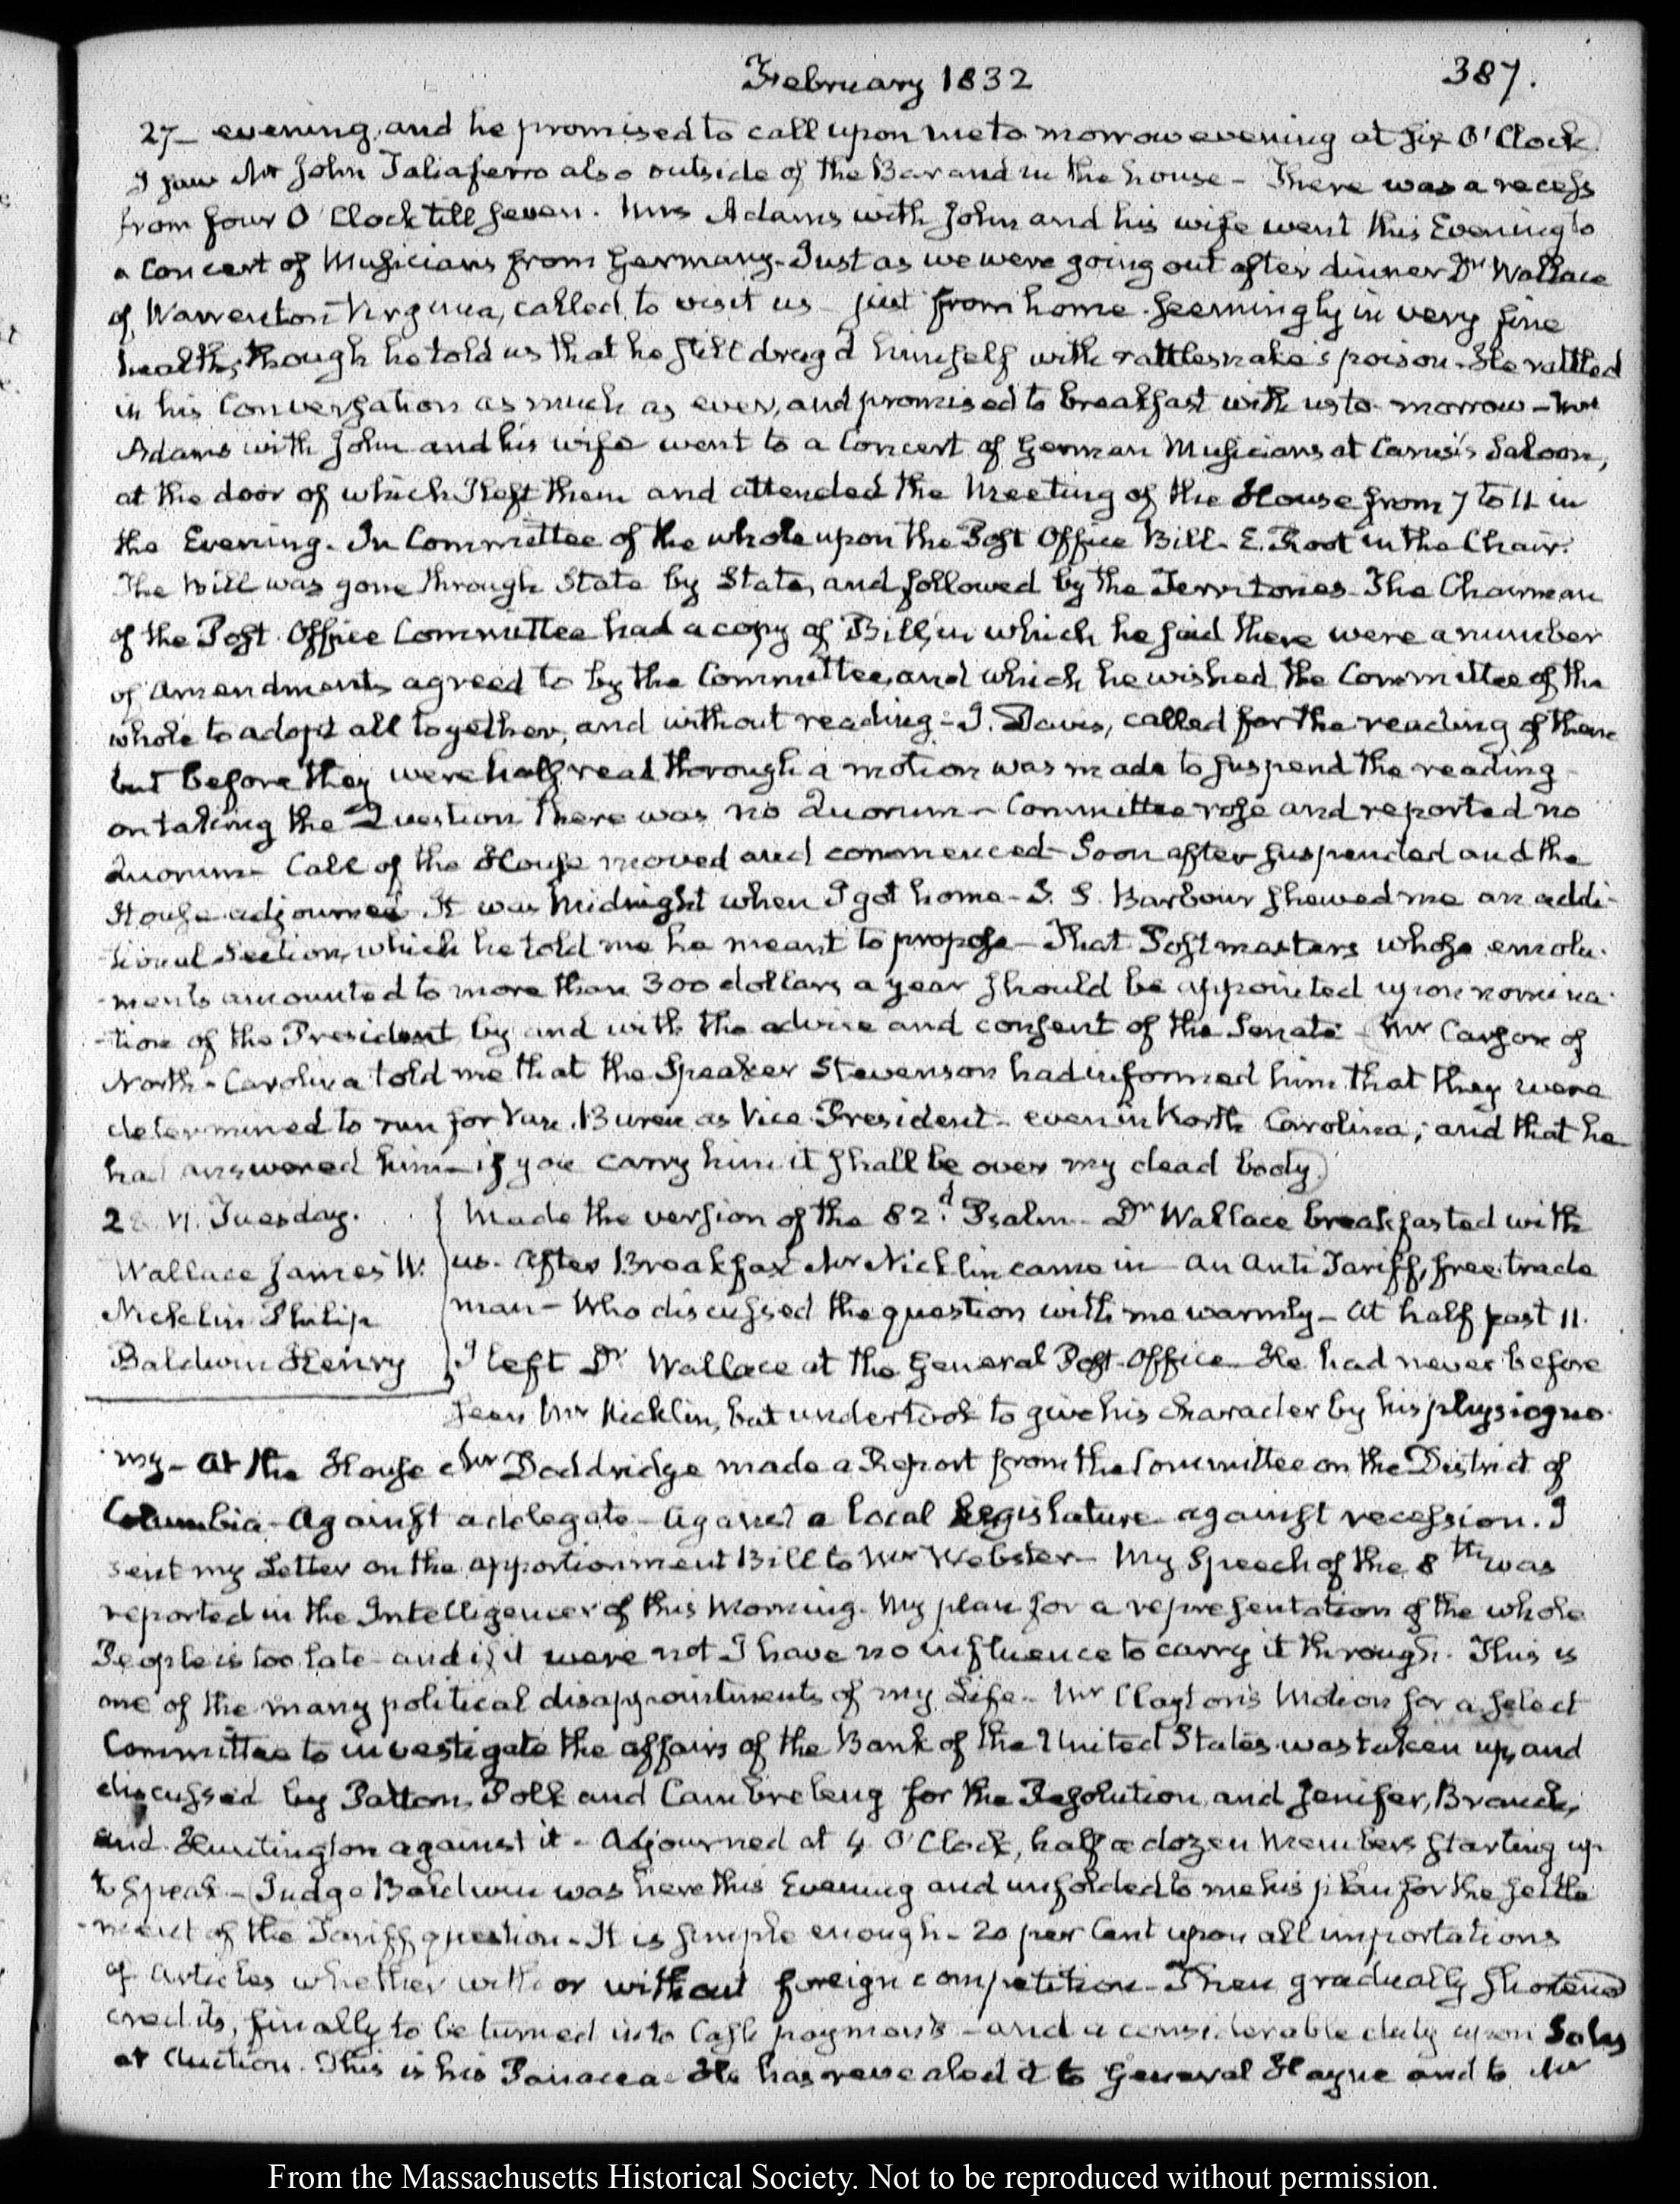 February 1832
387.
27— evening, and he promised to call upon me to morrow evening at six O'Clock.
I saw Mr John Taliaferro also outside of the Bar and in the house — There was a recess
from four O'Clock till seven. Mrs Adams with John and his wife went this Evening to
a Concert of Musicians from Germany. Just as we were going out after dinner Dr Wallace
of Warrenton Virginia, called, to visit us — just from home. seemingly in very fine
health, though he told us that he still drug'd himself with rattlesnake's poison. He rattled
in his Conversation as much as ever, and promised to breakfast with us to-morrow — Mrs
Adams with John and his wife went to a Concert of German Musicians at Carusi's Saloon,
at the door of which I left them and attended the Meeting of the House from 7 to 11 in
the Evening. In Committee of the whole upon the Post Office Bill. E. Root in the Chair.
The Bill was gone through State by State, and followed by the Territories. The Chairman
of the Post Office Committee had a copy of Bill, in which he said there were a number
of amendments agreed to by the Committee, and which he wished the Committee of the
whole to adopt all together, and without reading — J. Davis, called for the reading of them
but before they were half read through a motion was made to suspend the reading —
on taking the Question there was no Quorum — Committee rose and reported no
Quorum — Call of the House moved and commenced — Soon after suspended and the
House adjourned. It was Midnight when I got home — J. S. Barbour shewed me an addi-
tional Section, which he told me he meant to propose — That Postmasters whose emolu-
-ments amounted to more than 300 dollars a year should be appointed upon nomina-
-tion of the President by and with the advice and consent of the Senate — Mr Carson of
North-Carolina told me that the Speaker Stevenson had informed him that they were
determined to run for Van Buren as Vice-President — even in North Carolina; and that he
had answered him — if you carry him it shall be over my dead body.
28. VI. Tuesday.
Wallace James W.
Nicklin Philip
Baldwin Henry
Made the version of the 82.d Psalm — Dr Wallace breakfasted with
us. After Breakfast Mr Nicklin came in — An Anti Tariff, free trade
man — Who discussed the question with me warmly — At half past 11.
I left Dr Wallace at the General Post-Office. He had never before
seen Mr Nicklin, but undertook to give his character by his physiogno-
my — At the House Mr Doddridge made a Report from the Committee on the District of
Columbia — Against a delegate — Against a local Legislature — against recession. I
sent my Letter on the apportionment Bill to Mr Webster — My Speech of the 8th was
reported in the Intelligencer of this Morning. My plan for a representation of the whole
People is too late — and if it were not I have no influence to carry it through. This is
one of the many political disappointments of my Life — Mr Clayton's Motion for a select
Committee to investigate the affairs of the Bank of the United States was taken up, and
discussed by Patton, Polk and Cambreleng for the Resolution, and Jenifer, Branch,
and Huntington against it — Adjourned at 4 O'Clock, half a dozen Members starting up
to speak — Judge Baldwin was here this Evening and unfolded to me his plan for the settle
-ment of the Tariff question — It is simple enough — 20 per Cent upon all importations
of articles whether with or without foreign competition — Then gradually shortened
credits, finally to be turned into Cash payments — and a considerable duty upon Sales
at Auction. This is his Panacea — He has revealed it to General Hayne and to Mr
From the Massachusetts Historical Society. Not to be reproduced without permission.